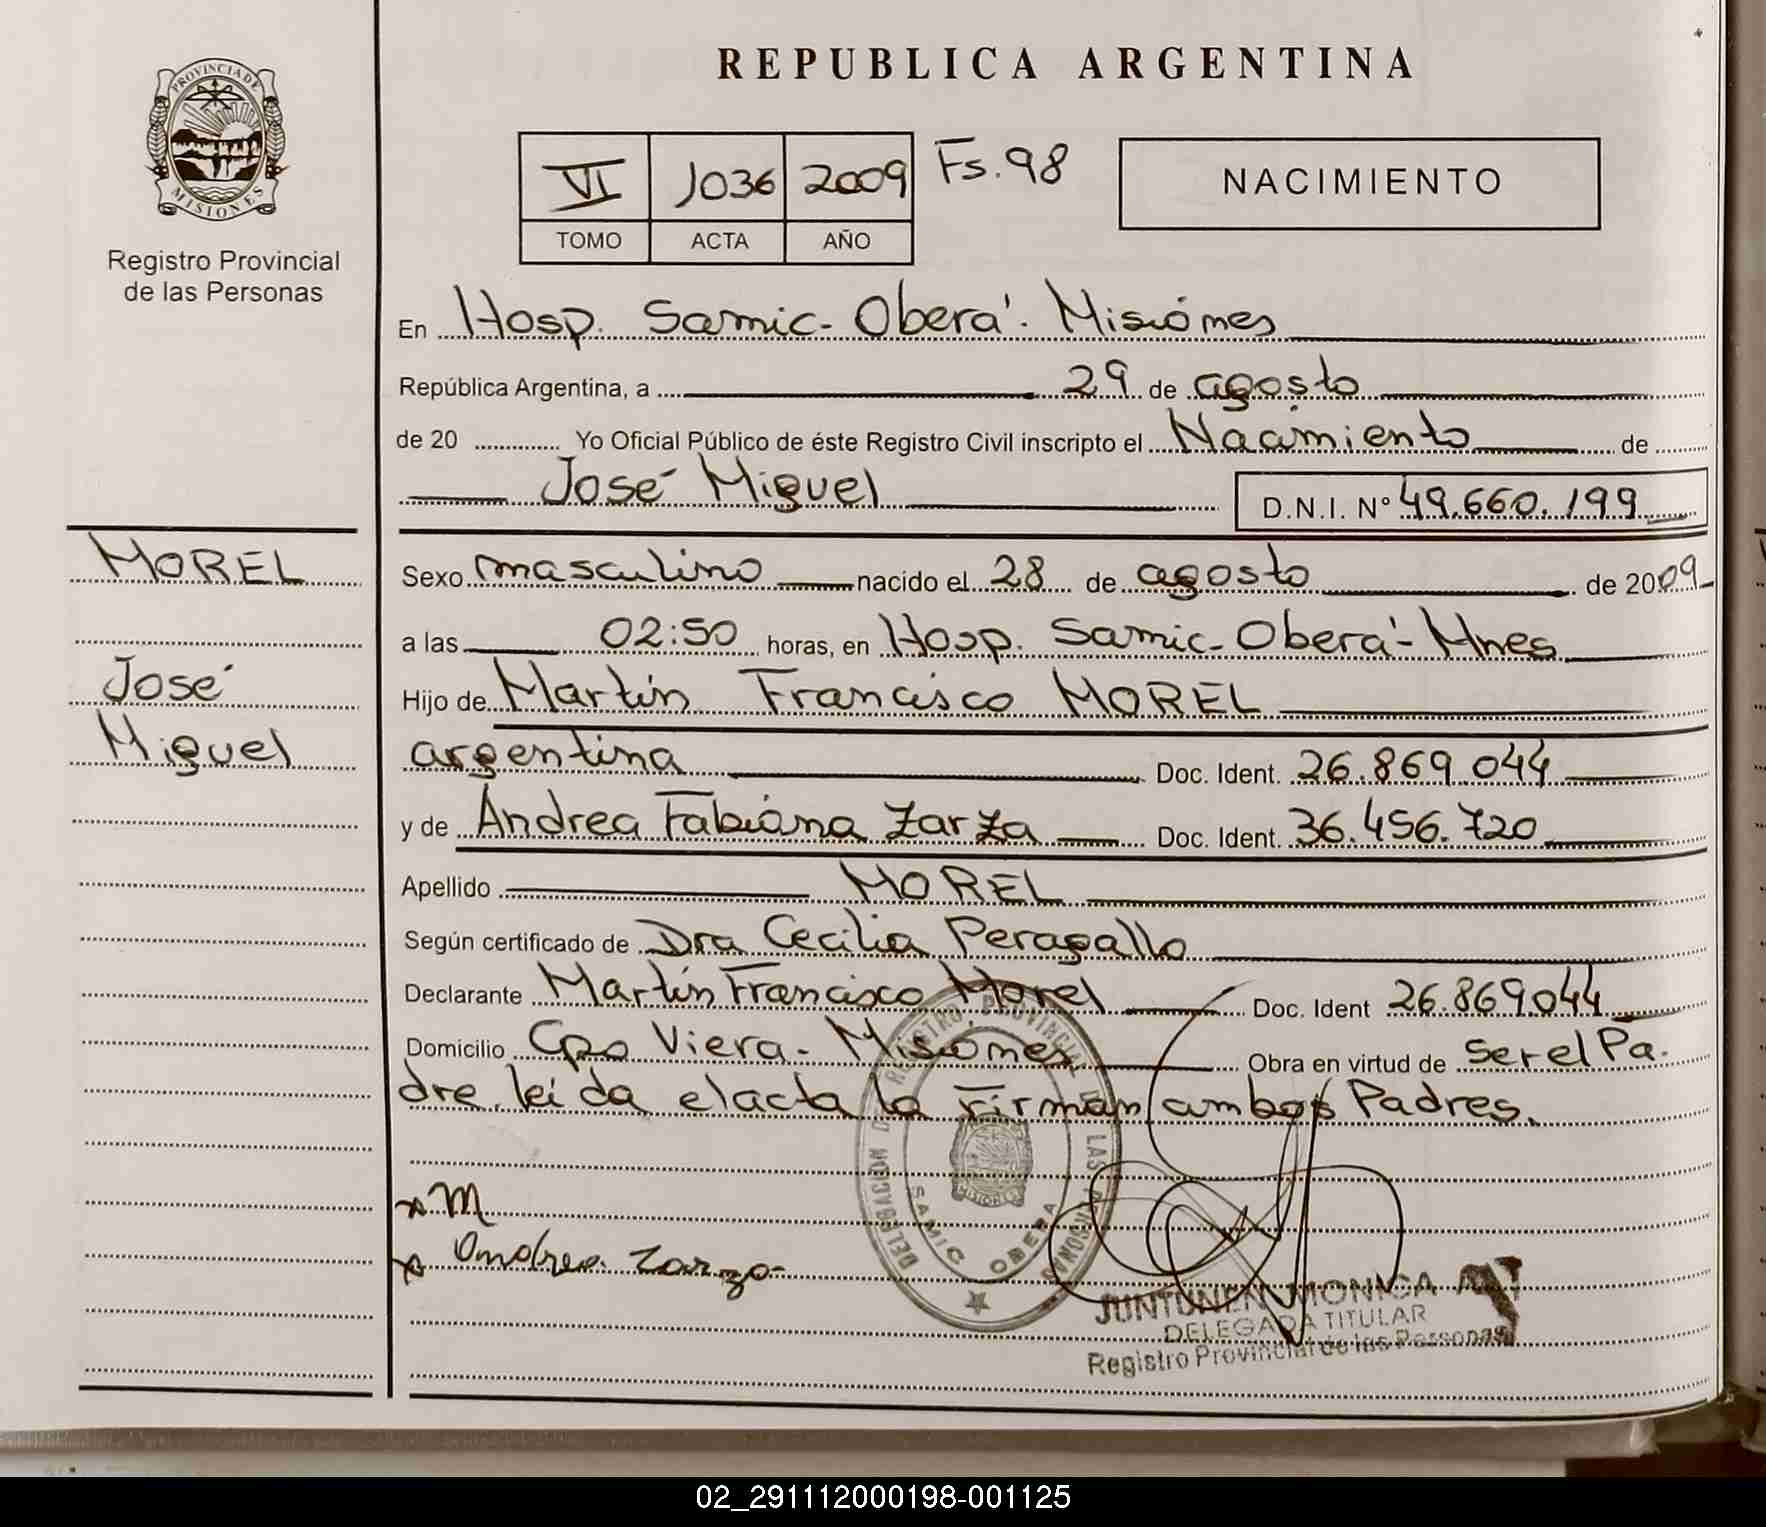 PROVINCIA DE
MISIONES
Registro Provincial
de las Personas
REPUBLICA ARGENTINA
VI 1036 2009 Fs. 98
TOMO ACTA AÑO
NACIMIENTO
En Hosp. Samic - Oberá - Misiones
República Argentina, a 29 de agosto
de 20 Yo Oficial Público de éste Registro Civil inscripto el Nacimiento de
José Miguel D.N.I. Nº 49.660.199
MOREL
José
Miguel
Sexo masculino nacido el 28 de agosto de 2009
a las 02:50 horas, en Hosp. Samic - Oberá - Mnes
Hijo de Martín Francisco MOREL
argentina Doc. Ident. 26.869.044
y de Andrea Fabiana Zarza Doc. Ident. 36.456.720
Apellido MOREL
Según certificado de Dra Cecilia Peragallo
Declarante Martín Francisco Morel Doc. Ident 26.869.044
Domicilio Cpo Viera - Misiones Obra en virtud de ser el Pa-
dre. leida el acta la Firman ambos Padres.
DELEGACION DE REGISTRO PROVINCIAL DE LAS PERSONAS
SAMIC OBERA
MISIONES
x M
x Andrea Zarza
JUNTUNEN MONICA
DELEGADA TITULAR
Registro Provincial de las Personas
02_291112000198-001125